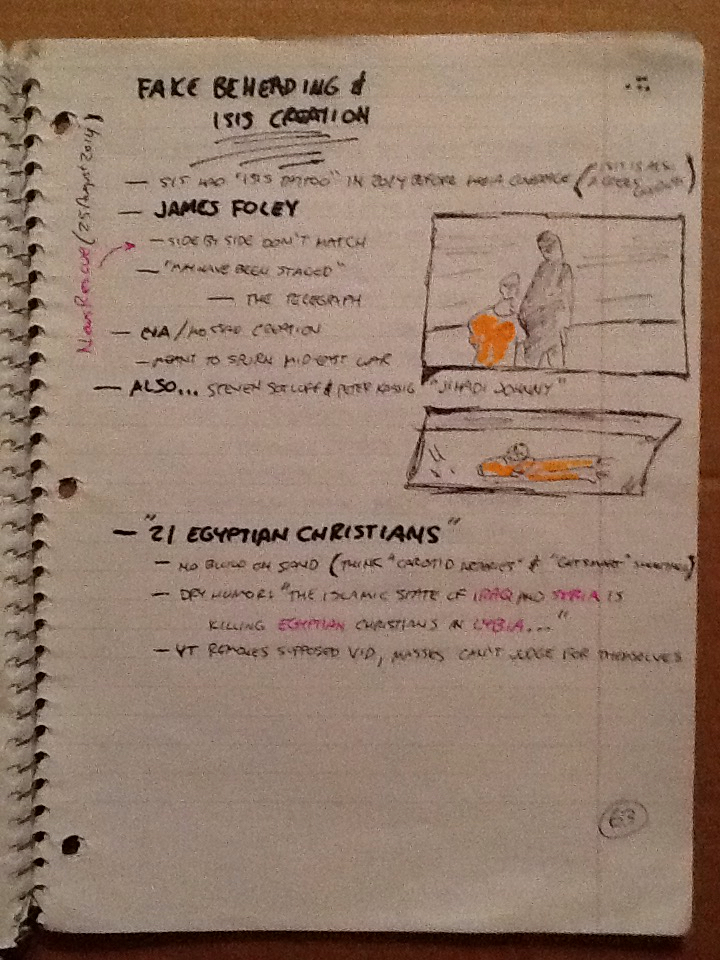 FAKE BEHEADING &
ISIS CREATION
— HAD "ISIS TATTOO" IN 2014 BEFORE MEDIA COVERAGE (
— JAMES FOLEY
NewsRescue (25 August 2014)
— SIDE BY SIDE DON'T MATCH
— "MAY HAVE BEEN STAGED"
— THE TELEGRAPH
— CIA/MOSSAD CREATION
— MEANT TO SPURN MID-EAST WAR
— ALSO... STEVEN SOTLOFF & PETER KASSIG "JIHADI JOHNNY"
— "21 EGYPTIAN CHRISTIANS"
— NO BLOOD ON SAND (THINK "CAROTID ARTERIES" & "GET SMART" )
— DRY HUMOR: "THE ISLAMIC STATE OF IRAQ AND SYRIA IS
KILLING EGYPTIAN CHRISTIANS IN LYBIA..."
— YT REMOVES SUPPOSED VID, MASSES CAN'T JUDGE FOR THEMSELVES
63